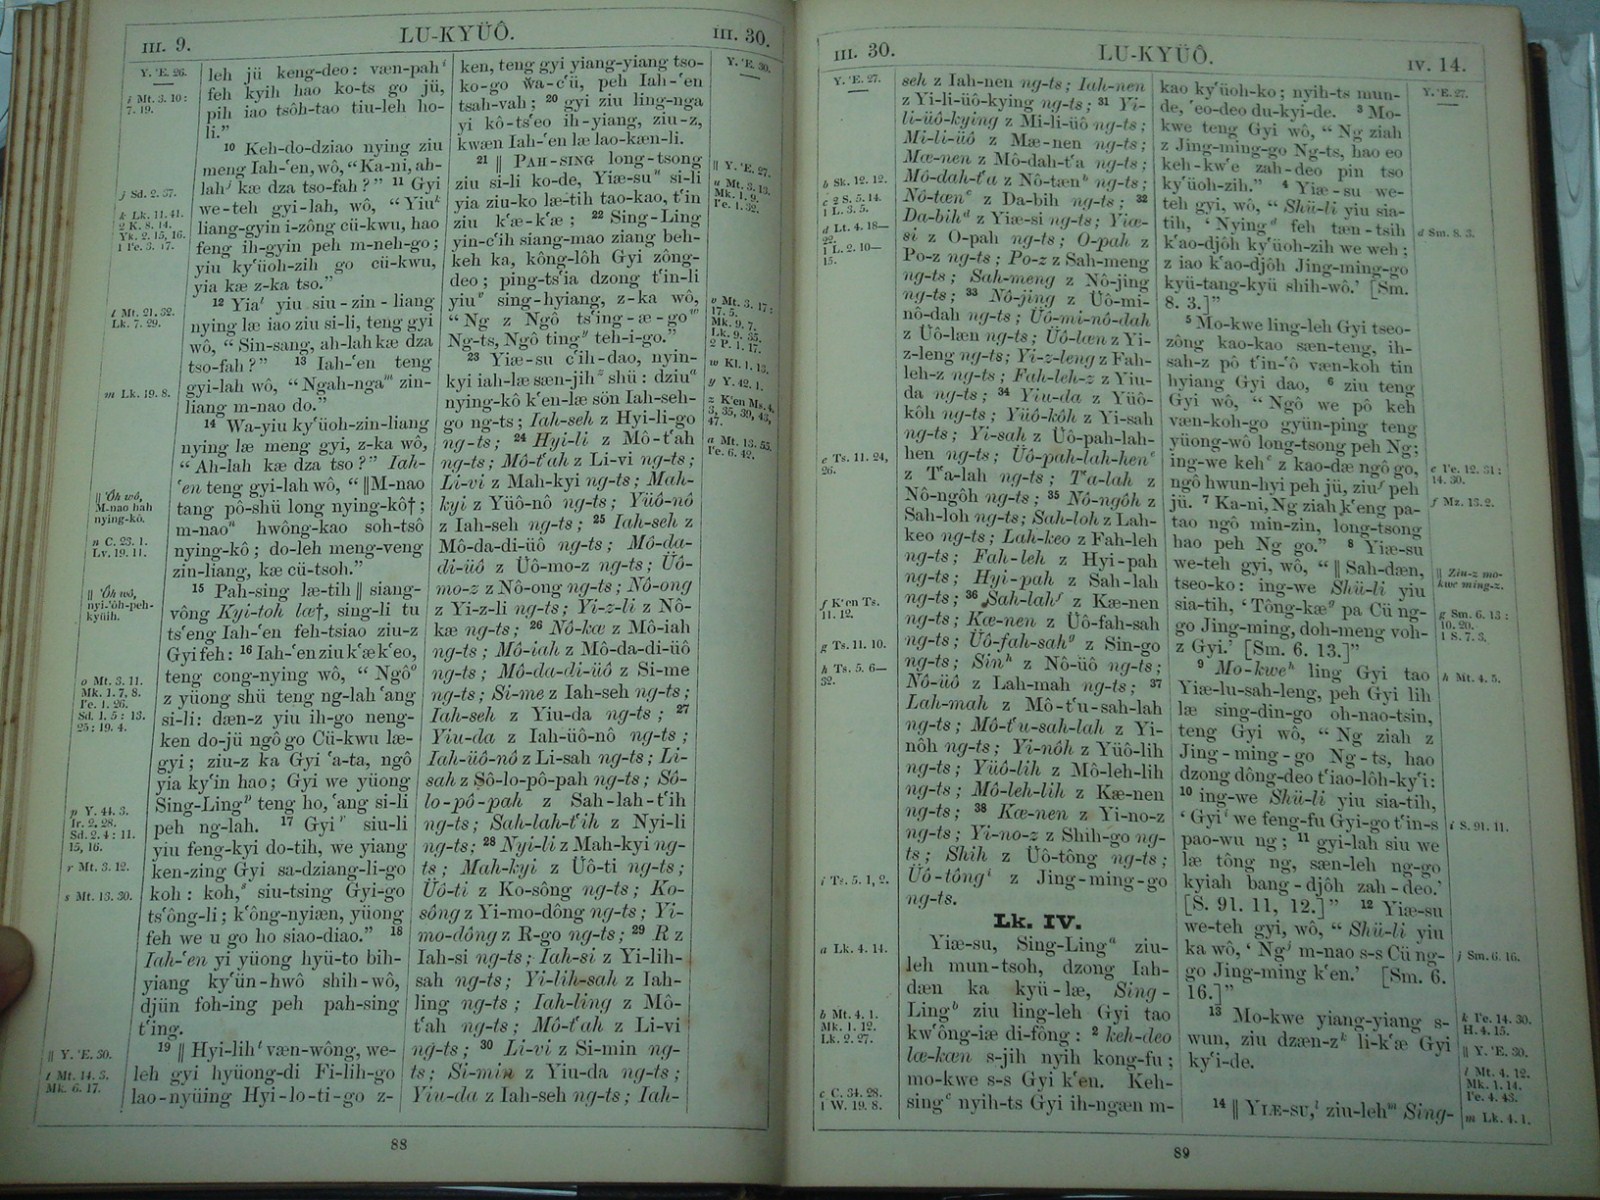 III. 9.
LU-KYÜÔ.
III. 30.
Y. 'E. 26.
i Mt. 3. 10:
7. 19.
j Sd. 2. 37.
k Lk. 11. 41.
2 K. 8. 14.
Yk. 2. 15, 16.
1 I'e. 3. 17.
l Mt. 21. 32.
Lk. 7. 29.
m Lk. 19. 8.
|| 'Ôh wô,
M-nao hah
nying-kô.
n C. 23. 1.
Lv. 19. 11.
|| 'Ôh wô,
nyi-'ôh-peh-
kyüih.
o Mt. 3. 11.
Mk. 1. 7, 8.
I'e. 1. 26.
Sd. 1. 5: 13.
25: 19. 4.
p Y. 44. 3.
Ir. 2. 28.
Sd. 2. 4: 11.
15, 16.
r Mt. 3. 12.
s Mt. 13. 30.
|| Y. 'E. 30.
t Mt. 14. 3.
Mk. 6. 17.
leh jü keng-deo: væn-pah i
feh kyih hao ko-ts go jü,
pih iao tsôh-tao tiu-leh ho-
li.”
10 Keh-do-dziao nying ziu
meng Iah-'en, wô, “Ka-ni, ah-
lah j kæ dza tso-fah?” 11 Gyi
we-teh gyi-lah, wô, “Yiu k
liang-gyin i-zông cü-kwu, hao
feng ih-gyin peh m-neh-go;
yiu ky'üoh-zih go cü-kwu,
yia kæ z-ka tso.”
12 Yia l yiu siu-zin-liang
nying læ iao ziu si-li, teng gyi
wô, “Sin-sang, ah-lah kæ dza
tso-fah?” 13 Iah-'en teng
gyi-lah wô, “Ngah-nga m zin-
liang m-nao do.”
14 Wa-yiu ky'üoh-zin-liang
nying læ meng gyi, z-ka wô,
“Ah-lah kæ dza tso?” Iah-
'en teng gyi-lah wô, “||M-nao
tang pô-shü long nying-kô†;
m-nao n hwông-kao soh-tsô
nying-kô; do-leh meng-veng
zin-liang, kæ cü-tsoh.”
15 Pah-sing læ-tih || siang-
vông Kyi-toh læ†, sing-li tu
ts'eng Iah-'en feh-tsiao ziu-z
Gyi feh: 16 Iah-'en ziu k'æk'eo,
teng cong-nying wô, “Ngô o
z yüong shü teng ng-lah 'ang
si-li: dæn-z yiu ih-go neng-
ken do-jü ngô go Cü-kwu læ-
gyi; ziu-z ka Gyi 'a-ta, ngô
yia ky'in hao; Gyi we yüong
Sing-Ling p teng ho, 'ang si-li
peh ng-lah. 17 Gyi r siu-li
yiu feng-kyi do-tih, we yiang
ken-zing Gyi sa-dziang-li-go
koh: koh, s siu-tsing Gyi-go
ts'ông-li; k'ông-nyiæn, yüong
feh we u go ho siao-diao.” 18
Iah-'en yi yüong hyü-to bih-
yiang ky'ün-hwô shih-wô,
djün foh-ing peh pah-sing
t'ing.
19 || Hyi-lih t væn-wông, we-
leh gyi hyüong-di Fi-lih-go
lao-nyüing Hyi-lo-ti-go z-
ken, teng gyi yiang-yiang tso-
ko-go wa-c'ü, peh Iah-'en
tsah-vah; 20 gyi ziu ling-nga
yi kô-ts'eo ih-yiang, ziu-z,
kwæn Iah-'en læ lao-kæn-li.
21 || Pah-sing long-tsong
ziu si-li ko-de, Yiæ-su u si-li
yia ziu-ko læ-tih tao-kao, t'in
ziu k'æ-k'æ; 22 Sing-Ling
yin-c'ih siang-mao ziang beh-
keh ka, kông-lôh Gyi zông-
deo; ping-ts'ia dzong t'in-li
yiu v sing-hyiang, z-ka wô,
“Ng z Ngô ts'ing-æ-go w
Ng-ts, Ngô ting y teh-i-go.”
23 Yiæ-su c'ih-dao, nyin-
kyi iah-læ sæn-jih z shü: dziu a
nying-kô k'en-læ sön Iah-seh-
go ng-ts; Iah-seh z Hyi-li-go
ng-ts; 24 Hyi-li z Mô-t'ah
ng-ts; Mô-t'ah z Li-vi ng-ts;
Li-vi z Mah-kyi ng-ts; Mah-
kyi z Yüô-nô ng-ts; Yüô-nô
z Iah-seh ng-ts; 25 Iah-seh z
Mô-da-di-üô ng-ts; Mô-da-
di-üô z Üô-mo-z ng-ts; Üô-
mo-z z Nô-ong ng-ts; Nô-ong
z Yi-z-li ng-ts; Yi-z-li z Nô-
kæ ng-ts; 26 Nô-kæ z Mô-iah
ng-ts; Mô-iah z Mô-da-di-üô
ng-ts; Mô-da-di-üô z Si-me
ng-ts; Si-me z Iah-seh ng-ts;
Iah-seh z Yiu-da ng-ts; 27
Yiu-da z Iah-üô-nô ng-ts;
Iah-üô-nô z Li-sah ng-ts; Li-
sah z Sô-lo-pô-pah ng-ts; Sô-
lo-pô-pah z Sah-lah-t'ih
ng-ts; Sah-lah-t'ih z Nyi-li
ng-ts; 28 Nyi-li z Mah-kyi ng-
ts; Mah-kyi z Üô-ti ng-ts;
Üô-ti z Ko-sông ng-ts; Ko-
sông z Yi-mo-dông ng-ts; Yi-
mo-dông z R-go ng-ts; 29 R z
Iah-si ng-ts; Iah-si z Yi-lih-
sah ng-ts; Yi-lih-sah z Iah-
ling ng-ts; Iah-ling z Mô-
t'ah ng-ts; Mô-t'ah z Li-vi
ng-ts; 30 Li-vi z Si-min ng-
ts; Si-min z Yiu-da ng-ts;
Yiu-da z Iah-seh ng-ts; Iah-
Y. 'E. 30.
|| Y. 'E. 27.
u Mt. 3. 13.
Mk. 1. 9.
I'e. 1. 32.
v Mt. 3. 17:
17. 5.
Mk. 9. 7.
Lk. 9. 35.
2 P. 1. 17.
w Kl. 1. 13.
y Y. 42. 1.
z K'en Ms. 4.
3, 35, 39, 43,
47.
a Mt. 13. 55.
I'e. 6. 42.
88
III. 30.
LU-KYÜÔ.
IV. 14.
Y. 'E. 27.
b Sk. 12. 12.
c 2 S. 5. 14.
1 L. 3. 5.
d Lt. 4. 18—
22.
1 L. 2. 10—
15.
e Ts. 11. 24,
26.
f K'en Ts.
11. 12.
g Ts. 11. 10.
h Ts. 5. 6—
32.
i Ts. 5. 1, 2.
a Lk. 4. 14.
b Mt. 4. 1.
Mk. 1. 12.
Lk. 2. 27.
c C. 34. 28.
1 W. 19. 8.
seh z Iah-nen ng-ts; Iah-nen
z Yi-li-üô-kying ng-ts; 31 Yi-
li-üô-kying z Mi-li-üô ng-ts;
Mi-li-üô z Mæ-nen ng-ts;
Mæ-nen z Mô-dah-t'a ng-ts;
Mô-dah-t'a z Nô-tæn b ng-ts;
Nô-tæn c z Da-bih ng-ts; 32
Da-bih d z Yiæ-si ng-ts; Yiæ-
si z O-pah ng-ts; O-pah z
Po-z ng-ts; Po-z z Sah-meng
ng-ts; Sah-meng z Nô-jing
ng-ts; 33 Nô-jing z Üô-mi-
nô-dah ng-ts; Üô-mi-nô-dah
z Üô-læn ng-ts; Üô-læn z Yi-
z-leng ng-ts; Yi-z-leng z Fah-
leh-z ng-ts; Fah-leh-z z Yiu-
da ng-ts; 34 Yiu-da z Yüô-
kôh ng-ts; Yüô-kôh z Yi-sah
ng-ts; Yi-sah z Üô-pah-lah-
hen ng-ts; Üô-pah-lah-hen e
z T'a-lah ng-ts; T'a-lah z
Nô-ngôh ng-ts; 35 Nô-ngôh z
Sah-loh ng-ts; Sah-loh z Lah-
keo ng-ts; Lah-keo z Fah-leh
ng-ts; Fah-leh z Hyi-pah
ng-ts; Hyi-pah z Sah-lah
ng-ts; 36 Sah-lah f z Kæ-nen
ng-ts; Kæ-nen z Üô-fah-sah
ng-ts; Üô-fah-sah g z Sin-go
ng-ts; Sin h z Nô-üô ng-ts;
Nô-üô z Lah-mah ng-ts; 37
Lah-mah z Mô-t'u-sah-lah
ng-ts; Mô-t'u-sah-lah z Yi-
nôh ng-ts; Yi-nôh z Yüô-lih
ng-ts; Yüô-lih z Mô-leh-lih
ng-ts; Mô-leh-lih z Kæ-nen
ng-ts; 38 Kæ-nen z Yi-no-z
ng-ts; Yi-no-z z Shih-go ng-
ts; Shih z Üô-tông ng-ts;
Üô-tông i z Jing-ming-go
ng-ts.
Lk. IV.
Yiæ-su, Sing-Ling a ziu-
leh mun-tsoh, dzong Iah-
dæn ka kyü-læ, Sing-
Ling b ziu ling-leh Gyi tao
kw'ông-iæ di-fông: 2 keh-deo
læ-kæn s-jih nyih kong-fu;
mo-kwe s-s Gyi k'en. Keh-
sing c nyih-ts Gyi ih-ngæn m-
kao ky'üoh-ko; nyih-ts mun-
de, 'eo-deo du-kyi-de. 3 Mo-
kwe teng Gyi wô, “Ng ziah
z Jing-ming-go Ng-ts, hao eo
keh-kw'e zah-deo pin tso
ky'üoh-zih.” 4 Yiæ-su we-
teh gyi, wô, “Shü-li yiu sia-
tih, ‘Nying d feh tæn-tsih
k'ao-djôh ky'üoh-zih we weh;
z iao k'ao-djôh Jing-ming-go
kyü-tang-kyü shih-wô.’ [Sm.
8. 3.]”
5 Mo-kwe ling-leh Gyi tseo-
zông kao-kao sæn-teng, ih-
sah-z pô t'in-'ô væn-koh tin
hyiang Gyi dao, 6 ziu teng
Gyi wô, “Ngô we pô keh
væn-koh-go gyün-ping teng
yüong-wô long-tsong peh Ng;
ing-we keh e z kao-dæ ngô go,
ngô hwun-hyi peh jü, ziu f peh
jü. 7 Ka-ni, Ng ziah k'eng pa-
tao ngô min-zin, long-tsong
hao peh Ng go.” 8 Yiæ-su
we-teh gyi, wô, “|| Sah-dæn,
tseo-ko: ing-we Shü-li yiu
sia-tih, ‘Tông-kæ g pa Cü ng-
go Jing-ming, doh-meng voh-
z Gyi.’ [Sm. 6. 13.]”
9 Mo-kwe h ling Gyi tao
Yiæ-lu-sah-leng, peh Gyi lih
læ sing-din-go oh-nao-tsin,
teng Gyi wô, “Ng ziah z
Jing-ming-go Ng-ts, hao
dzong dông-deo t'iao-lôh-ky'i:
10 ing-we Shü-li yiu sia-tih,
‘Gyi i we feng-fu Gyi-go t'in-s
pao-wu ng; 11 gyi-lah siu we
læ tông ng, sæn-leh ng-go
kyiah bang-djôh zah-deo.’
[S. 91. 11, 12.]” 12 Yiæ-su
we-teh gyi, wô, “Shü-li yiu
ka wô, ‘Ng j m-nao s-s Cü ng-
go Jing-ming k'en.’ [Sm. 6.
16.]”
13 Mo-kwe yiang-yiang s-
wun, ziu dzæn-z k li-k'æ Gyi
ky'i-de.
14 || Yiæ-su, l ziu-leh m Sing-
Y. 'E. 27.
d Sm. 8. 3.
e I'e. 12. 31:
14. 30.
f Mz. 13. 2.
|| Ziu-z mo-
kwe ming-z.
g Sm. 6. 13:
10. 20.
1 S. 7. 3.
h Mt. 4. 5.
i S. 91. 11.
j Sm. 6. 16.
k I'e. 14. 30.
H. 4. 15.
|| Y. 'E. 30.
l Mt. 4. 12.
Mk. 1. 14.
I'e. 4. 43.
m Lk. 4. 1.
89